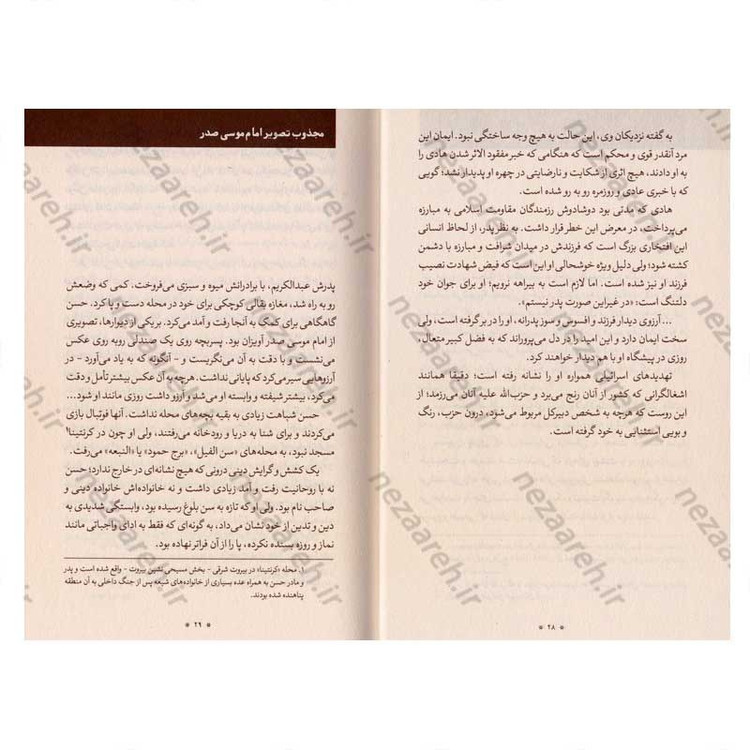 به گفته نزدیکان وی، این حالت به هیچ وجه ساختگی نبود. ایمان این
مرد آنقدر قوی و محکم است که هنگامی که خبر مفقود الاثر شدن هادی را
به او دادند، هیچ اثری از شکایت و نارضایتی در چهره او پدیدار نشد؛ گویی
که با خبری عادی و روزمره رو به رو شده است.
هادی که مدتی بود دوشادوش رزمندگان مقاومت اسلامی به مبارزه
می‌پرداخت، در معرض این خطر قرار داشت. به نظر پدر، از لحاظ انسانی
این افتخاری بزرگ است که فرزندش در میدان شرافت و مبارزه با دشمن
کشته شود؛ ولی دلیل ویژه خوشحالی او این است که فیض شهادت نصیب
فرزند او نیز شده است. اما لازم است به بیراهه نرویم؛ او برای جوان خود
دلتنگ است: «در غیر این صورت پدر نیستم».
... آرزوی دیدار فرزند و افسوس و سوز پدرانه، او را در بر گرفته است، ولی
سخت ایمان دارد و این امید را در دل می‌پروراند که به فضل کبیر متعال،
روزی در پیشگاه او با هم دیدار خواهند کرد.
تهدیدهای اسرائیلی همواره او را نشانه رفته است؛ دقیقا همانند
اشغالگرانی که کشور از آنان رنج می‌برد و حزب‌الله علیه آنان می‌رزمد؛ از
این روست که هرچه به شخص دبیرکل مربوط می‌شود، درون حزب، رنگ
و بویی استثنایی به خود گرفته است.
* ۲۸ *
مجذوب تصویر امام موسی صدر
پدرش عبدالکریم، با برادرانش میوه و سبزی می‌فروخت. کمی که وضعش
رو به راه شد، مغازه بقالی کوچکی برای خود در محله دست و پا کرد. حسن
گاهگاهی برای کمک به آنجا رفت و آمد می‌کرد. بر یکی از دیوارها، تصویری
از امام موسی صدر آویزان بود. پسربچه روی یک صندلی روبه روی عکس
می‌نشست و با دقت به آن می‌نگریست و - آنگونه که به یاد می‌آورد - در
آرزوهایی سیر می‌کرد که پایانی نداشت. هرچه به آن عکس بیشتر تأمل و دقت
می‌کرد، بیشتر شیفته و وابسته او می‌شد و آرزو داشت روزی مانند او شود...
حسن شباهت زیادی به بقیه بچه‌های محله نداشت. آنها فوتبال بازی
می‌کردند و برای شنا به دریا و رودخانه می‌رفتند، ولی او چون در کرنتینا۱
مسجد نبود، به محله‌های «سن الفیل»، «برج حمود» یا «النبعه» می‌رفت.
یک کشش و گرایش دینی درونی که هیچ نشانه‌ای در خارج ندارد؛ حسن
نه با روحانیت رفت و آمد زیادی داشت و نه خانواده‌اش خانواده دینی و
صاحب نام بود. ولی او که تازه به سن بلوغ رسیده بود، وابستگی شدیدی به
دین و تدین از خود نشان می‌داد، به گونه‌ای که فقط به ادای واجباتی مانند
نماز و روزه بسنده نکرده، پا را از آن فراتر نهاده بود.
۱. محله «کرنتینا» در بیروت شرقی - بخش مسیحی نشین بیروت - واقع شده است و پدر
و مادر حسن به همراه عده بسیاری از خانواده‌های شیعه پس از جنگ داخلی به آن منطقه
پناهنده شده بودند.
* ۲۹ *
nezaareh.ir
nezaareh.ir
nezaareh.ir
nezaareh.ir
nezaareh.ir
nezaareh.ir